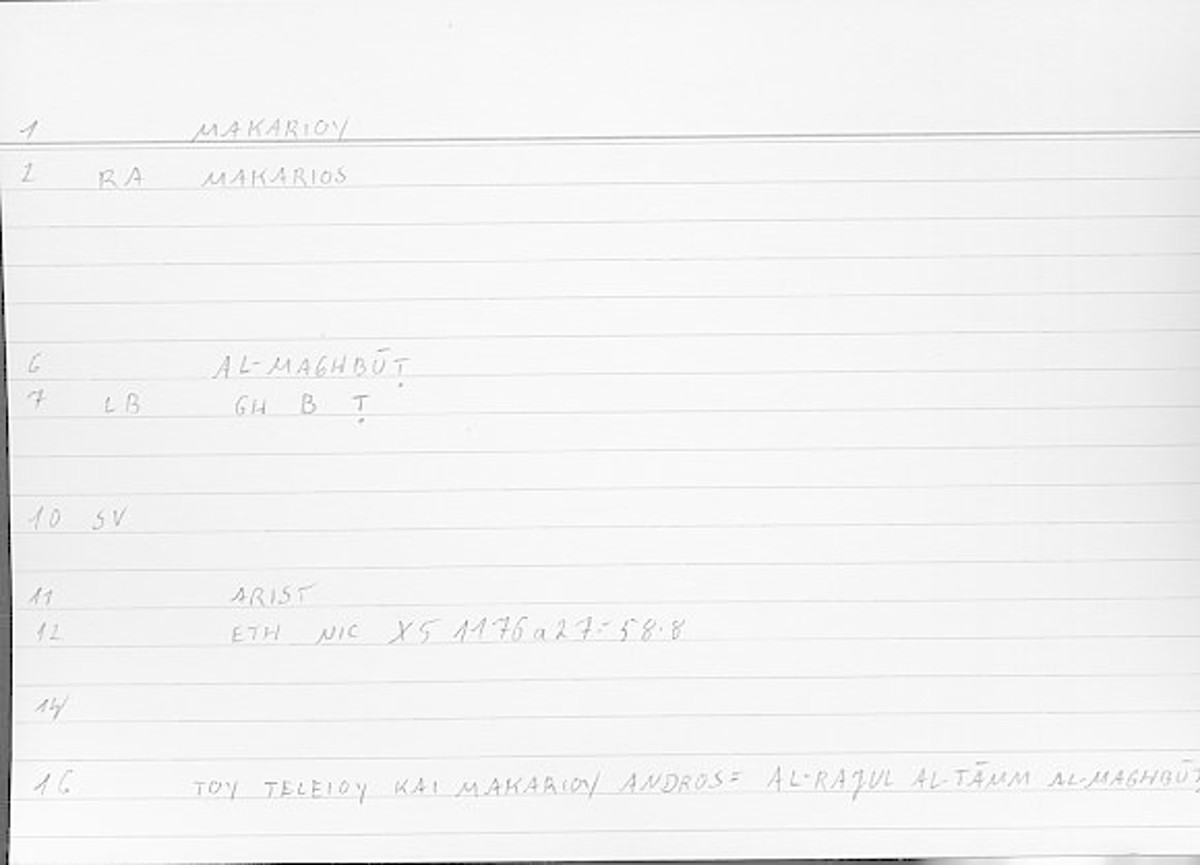 1 MAKARIOY
2 RA MAKARIOS
6 AL-MAGHBŪṬ
7 LB GH B Ṭ
10 SV
11 ARIST
12 ETH NIC X5 1176a27=58.8
14
16 TOY TELEIOY KAI MAKARIOY ANDROS= AL-RAJUL AL-TĀMM AL-MAGHBŪṬ